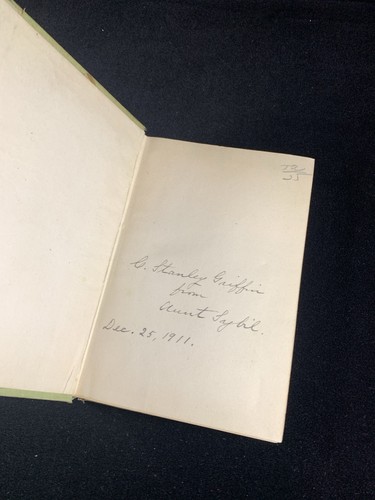 C. Stanley Griffin
from
Aunt Sybil.
Dec. 25, 1911.